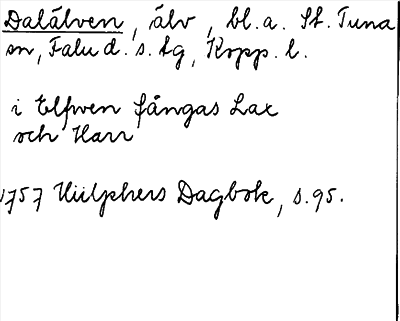 Dalälven, älv, bl.a. St. Tuna
sn, Falu d. s. tg, Kopp. l.
i Elfwen fångas Lax
och Harr
1757 Hülphers Dagbok, s. 95.